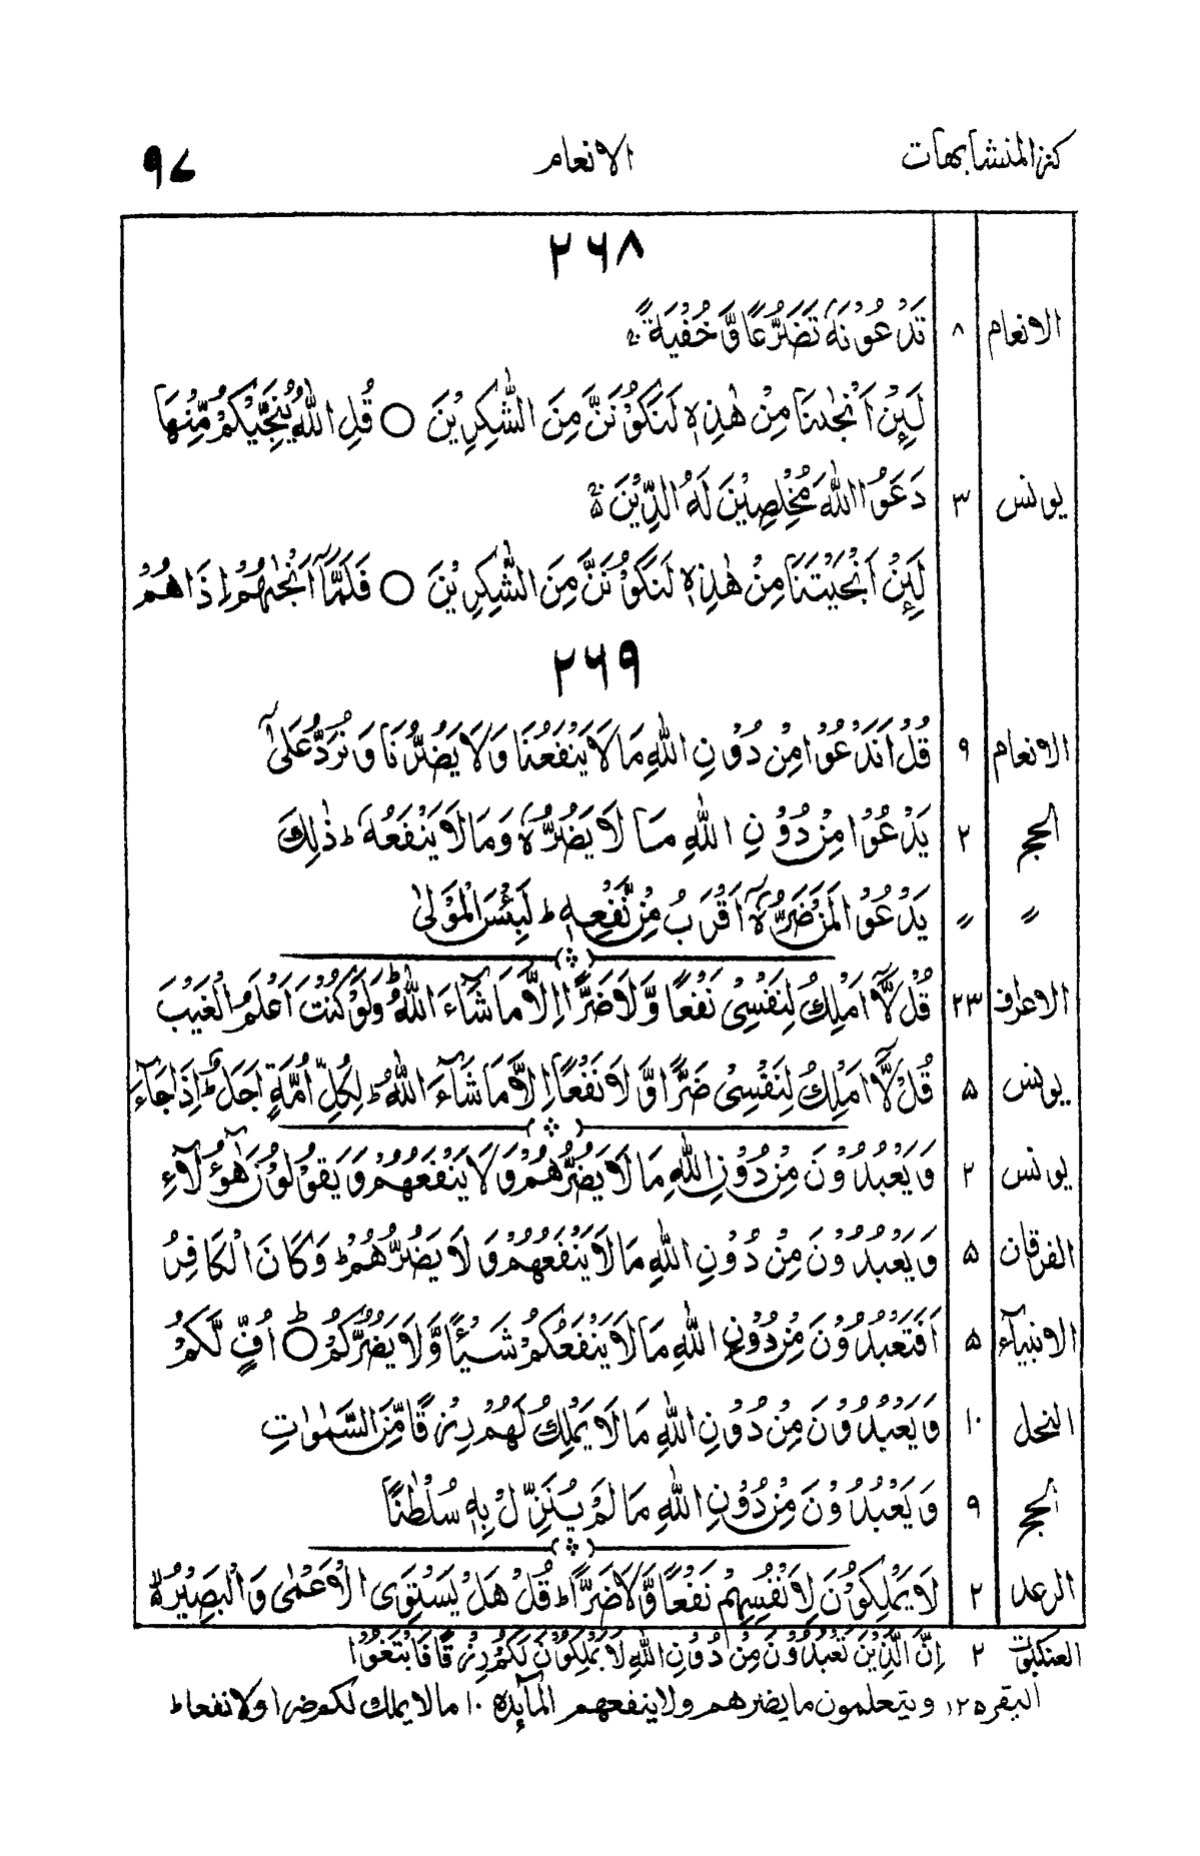 كنز المتشابهات الانعام ٩٧
٢٦٨
الانعام ٨ تَدْعُوْنَهٗ تَضَرُّعًا وَّ خُفْيَةً ۚ
لَىِٕنْ اَنْجٰىنَا مِنْ هٰذِهٖ لَنَكُوْنَنَّ مِنَ الشّٰكِرِيْنَ ○ قُلِ اللّٰهُ يُنَجِّيْكُمْ مِّنْهَا
يونس ٣ دَعَوُا اللّٰهَ مُخْلِصِيْنَ لَهُ الدِّيْنَ ۚ
لَىِٕنْ اَنْجَيْتَنَا مِنْ هٰذِهٖ لَنَكُوْنَنَّ مِنَ الشّٰكِرِيْنَ ○ فَلَمَّاۤ اَنْجٰىهُمْ اِذَا هُمْ
٢٦٩
الانعام ٩ قُلْ اَنَدْعُوْا مِنْ دُوْنِ اللّٰهِ مَا لَا يَنْفَعُنَا وَلَا يَضُرُّنَا وَ نُرَدُّ عَلٰۤى
الحج ٢ يَدْعُوْا مِنْ دُوْنِ اللّٰهِ مَا لَا يَضُرُّهٗ وَمَا لَا يَنْفَعُهٗ ؕ ذٰلِكَ
〃 〃 يَدْعُوْا لَمَنْ ضَرُّهٗۤ اَقْرَبُ مِنْ نَّفْعِهٖ ؕ لَبِئْسَ الْمَوْلٰى
الاعرف ٢٣ قُلْ لَّاۤ اَمْلِكُ لِنَفْسِيْ نَفْعًا وَّلَا ضَرًّا اِلَّا مَا شَآءَ اللّٰهُ ؕ وَلَوْ كُنْتُ اَعْلَمُ الْغَيْبَ
يونس ٥ قُلْ لَّاۤ اَمْلِكُ لِنَفْسِيْ ضَرًّا وَّ لَا نَفْعًا اِلَّا مَا شَآءَ اللّٰهُ ؕ لِكُلِّ اُمَّةٍ اَجَلٌ ؕ اِذَا جَآءَ
يونس ٢ وَيَعْبُدُوْنَ مِنْ دُوْنِ اللّٰهِ مَا لَا يَضُرُّهُمْ وَلَا يَنْفَعُهُمْ وَيَقُوْلُوْنَ هٰۤؤُلَآءِ
الفرقان ٥ وَيَعْبُدُوْنَ مِنْ دُوْنِ اللّٰهِ مَا لَا يَنْفَعُهُمْ وَ لَا يَضُرُّهُمْ ؕ وَكَانَ الْكَافِرُ
الانبيآء ٥ اَفَتَعْبُدُوْنَ مِنْ دُوْنِ اللّٰهِ مَا لَا يَنْفَعُكُمْ شَيْـًٔا وَّلَا يَضُرُّكُمْ ○ؕ اُفٍّ لَّكُمْ
النحل ١٠ وَيَعْبُدُوْنَ مِنْ دُوْنِ اللّٰهِ مَا لَا يَمْلِكُ لَهُمْ رِزْقًا مِّنَ السَّمٰوٰتِ
الحج ٩ وَيَعْبُدُوْنَ مِنْ دُوْنِ اللّٰهِ مَا لَمْ يُنَزِّلْ بِهٖ سُلْطٰنًا
الرعد ٢ لَا يَمْلِكُوْنَ لِاَنْفُسِهِمْ نَفْعًا وَّلَا ضَرًّا ؕ قُلْ هَلْ يَسْتَوِى الْاَعْمٰى وَالْبَصِيْرُ ۙ
العنكبوت ٢ اِنَّ الَّذِيْنَ تَعْبُدُوْنَ مِنْ دُوْنِ اللّٰهِ لَا يَمْلِكُوْنَ لَكُمْ رِزْقًا فَابْتَغُوْا
البقره ١٢ ويتعلمون ما يضرهم ولا ينفعهم المآئدة ١٠ ما لا يملك لكم ضرا ولا نفعا ؕ